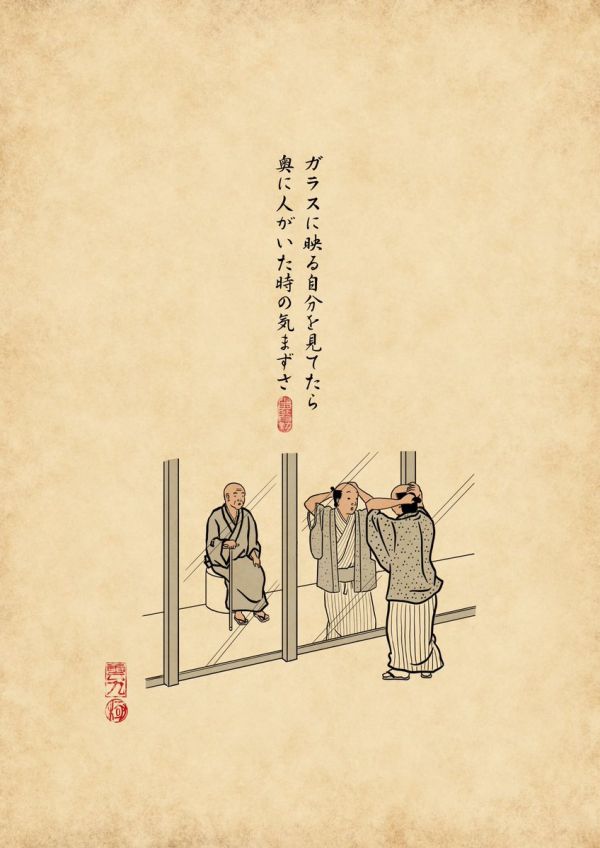 ガラスに映る自分を見てたら
奥に人がいた時の気まずさ